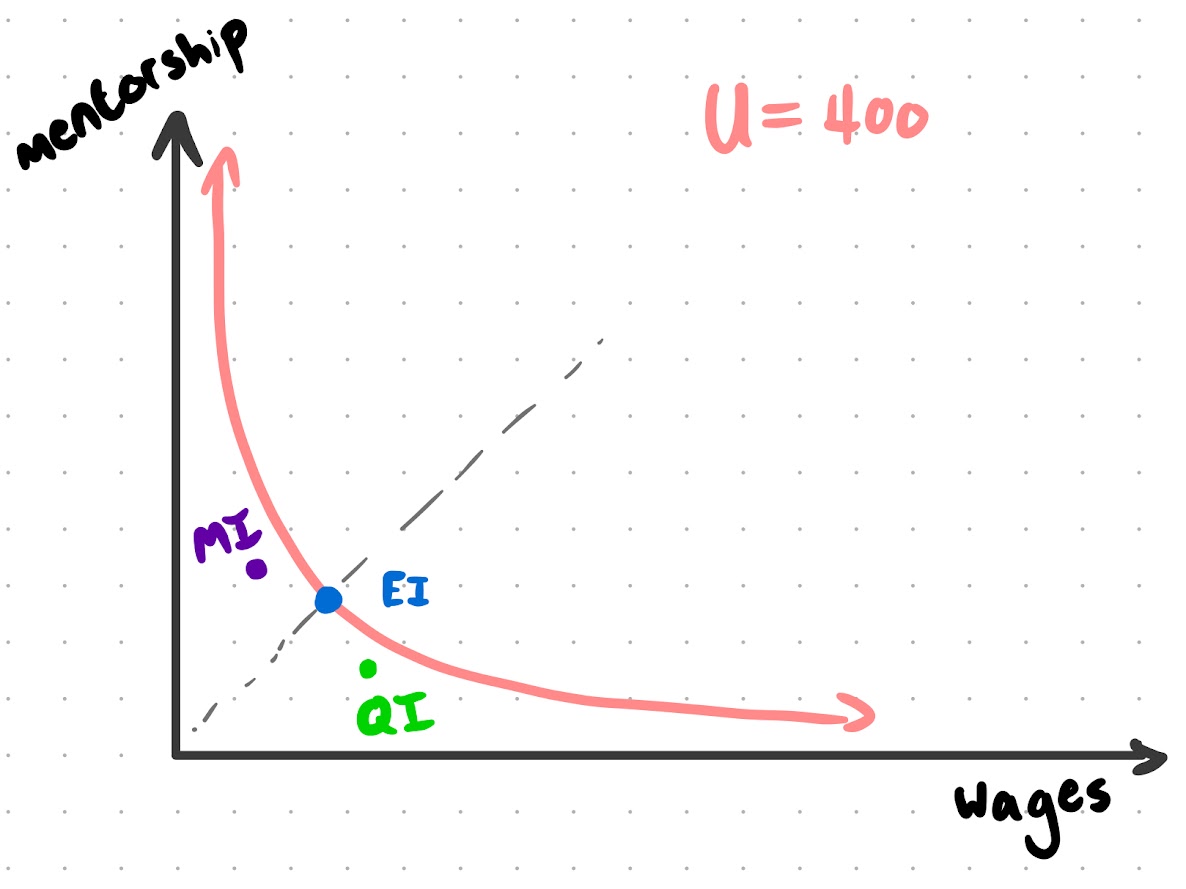 mentorship
U = 400
MI
EI
QI
wages